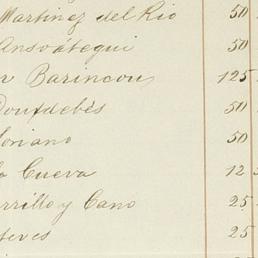 Martinez del Rio 50
Ansoátegui 50
Barincou, 125
Doufdebés 50
Soriano 50
Cueva 12
rrillo y Cano 25
teves 25
25